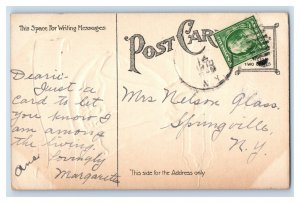 This Space For Writing Messages
POST CARD
N.Y.
TWO
Dearie:-
Just a
card to let
you know I
am among
the living.
Lovingly
Margarete
Mrs Nelson Glass,
Springville,
N.Y.
This side for the Address only